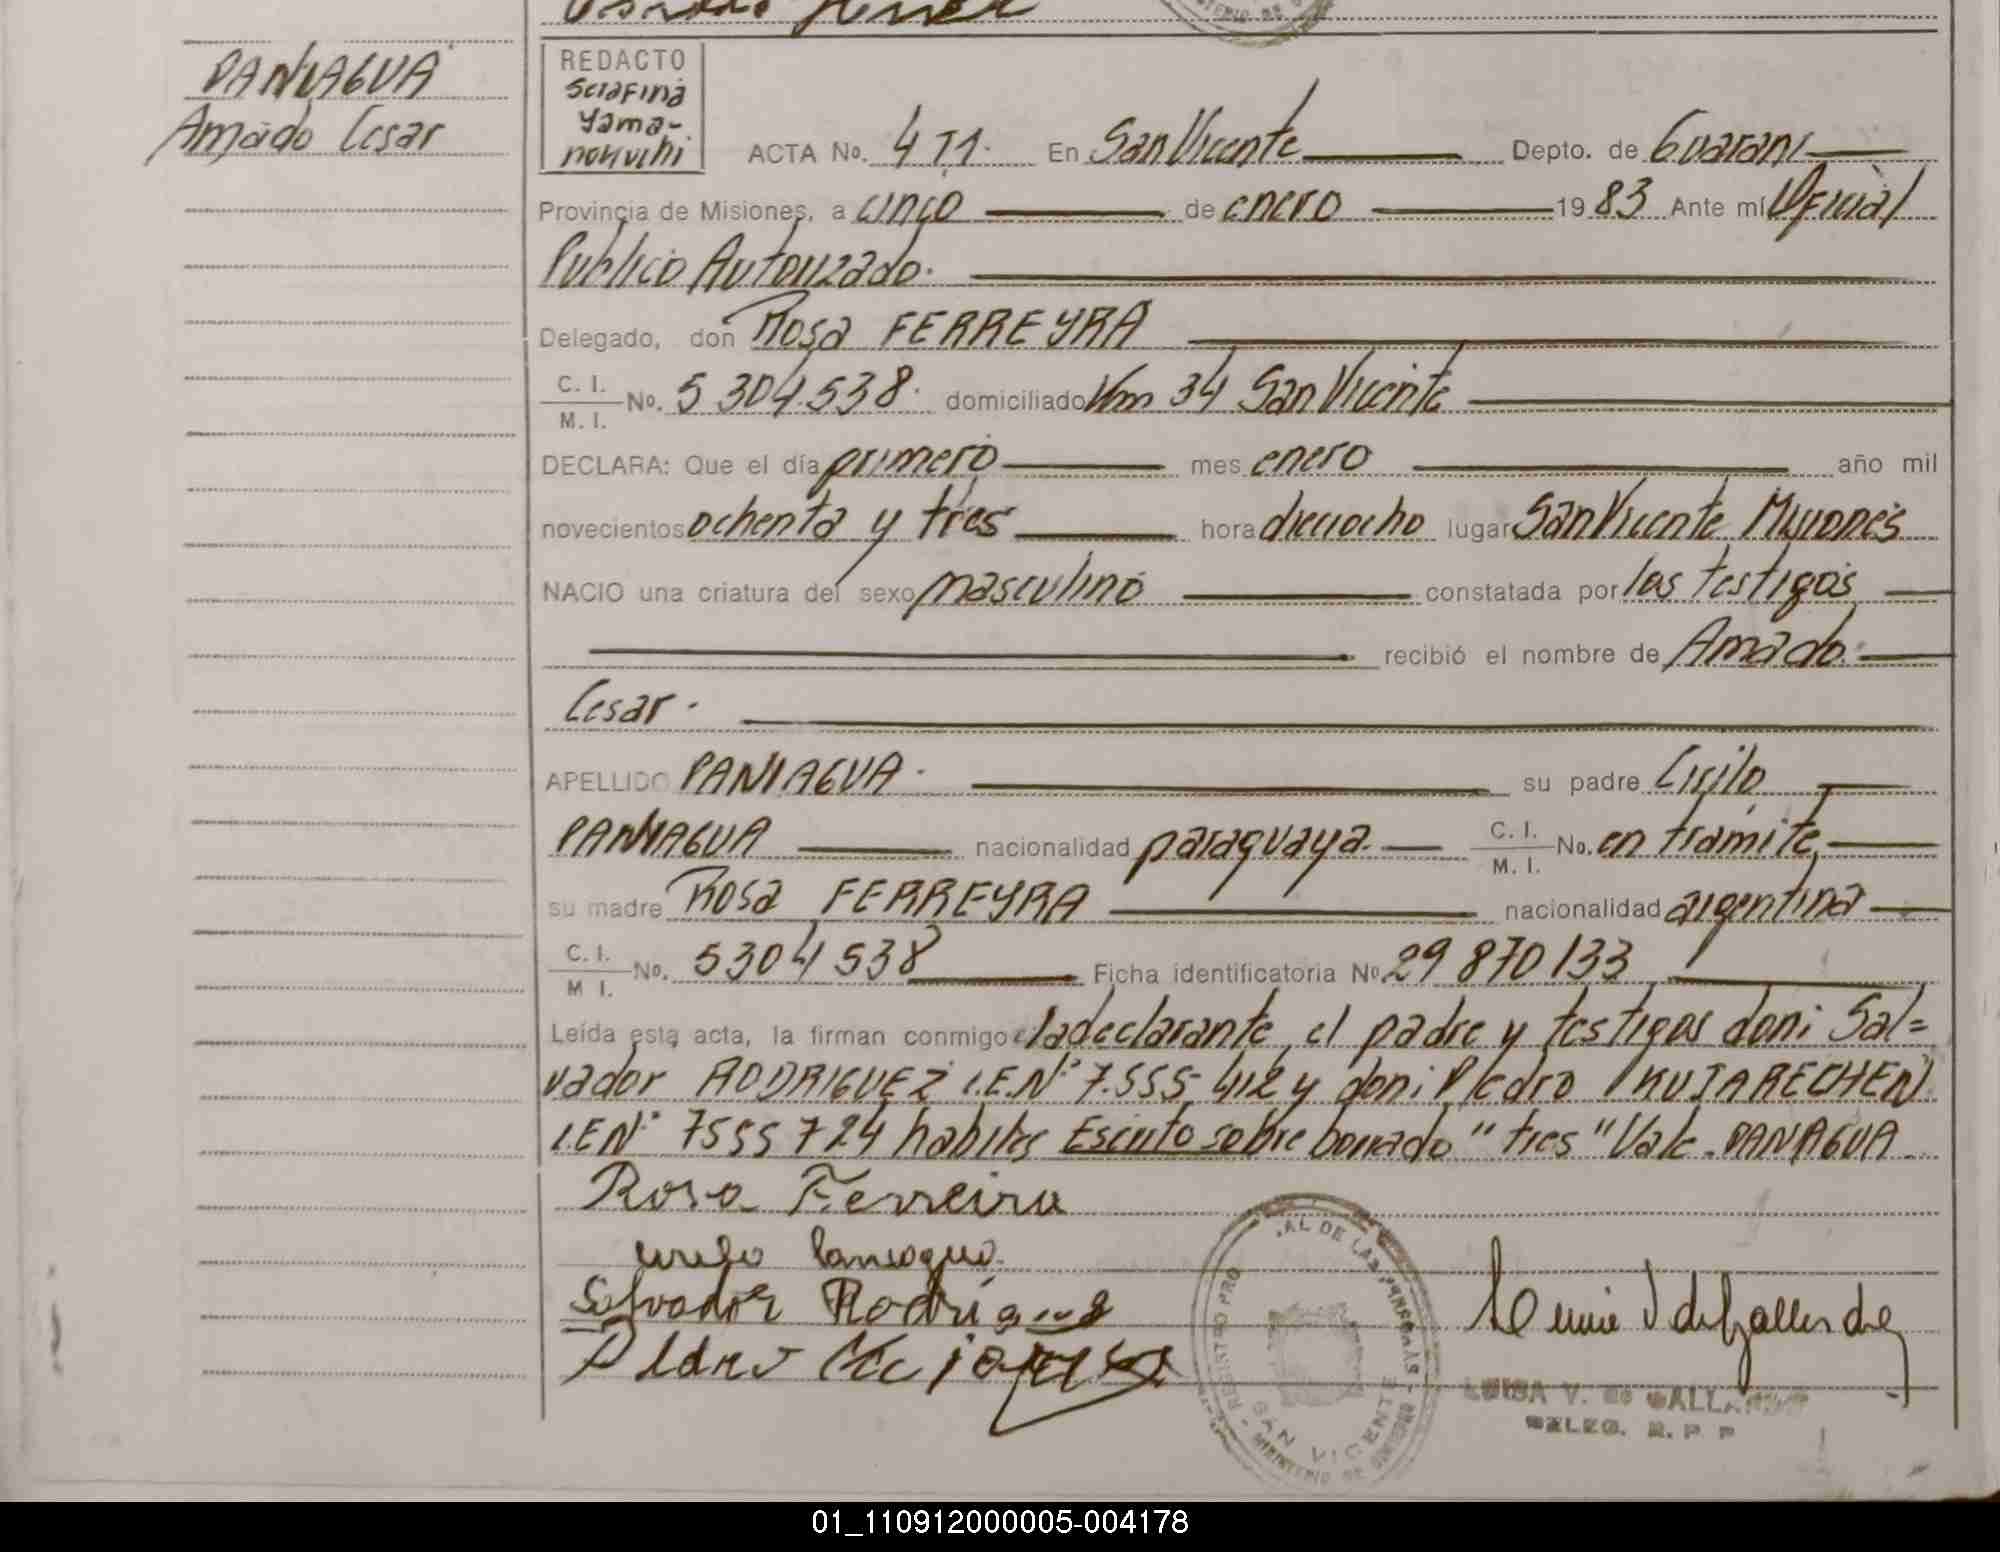 PANIAGUA
Amado Cesar
REDACTO
Serafina
Yama-
nouchi
ACTA No. 4 T1. En San Vicente Depto. de Guarani
Provincia de Misiones, a cinco de enero 1983 Ante mí Oficial
Publico Autorizado.
Delegado, don Rosa FERREYRA
C. I.
M. I. No. 5 304.538. domiciliado Km 34 San Vicente
DECLARA: Que el día primero mes enero año mil
novecientos ochenta y tres hora dieciocho lugar San Vicente Misiones
NACIO una criatura del sexo masculino constatada por los testigos
recibió el nombre de Amado
Cesar.
APELLIDO PANIAGUA. su padre Cirilo
PANIAGUA nacionalidad paraguaya. C. I.
M. I. No. en tramite
su madre Rosa FERREYRA nacionalidad argentina
C. I.
M I. No. 5304538 Ficha identificatoria No. 29 870133
Leída esta acta, la firman conmigo la declarante, el padre y testigos doni Sal=
vador RODRIGUEZ L.E.N° 7.555.412 y doni Pedro KUJARECHEN
L.EN° 7555724 habiles Escrito sobre borrado "tres" Vale. PANIAGUA
Rosa Ferreira
Salvador
Pedro
REGISTRO PRO AL DE LAS PERSONAS
SAN VICENTE
MINISTERIO DE
LUISA V. DE GALLARDO
DELEG. R. P. P
01_110912000005-004178